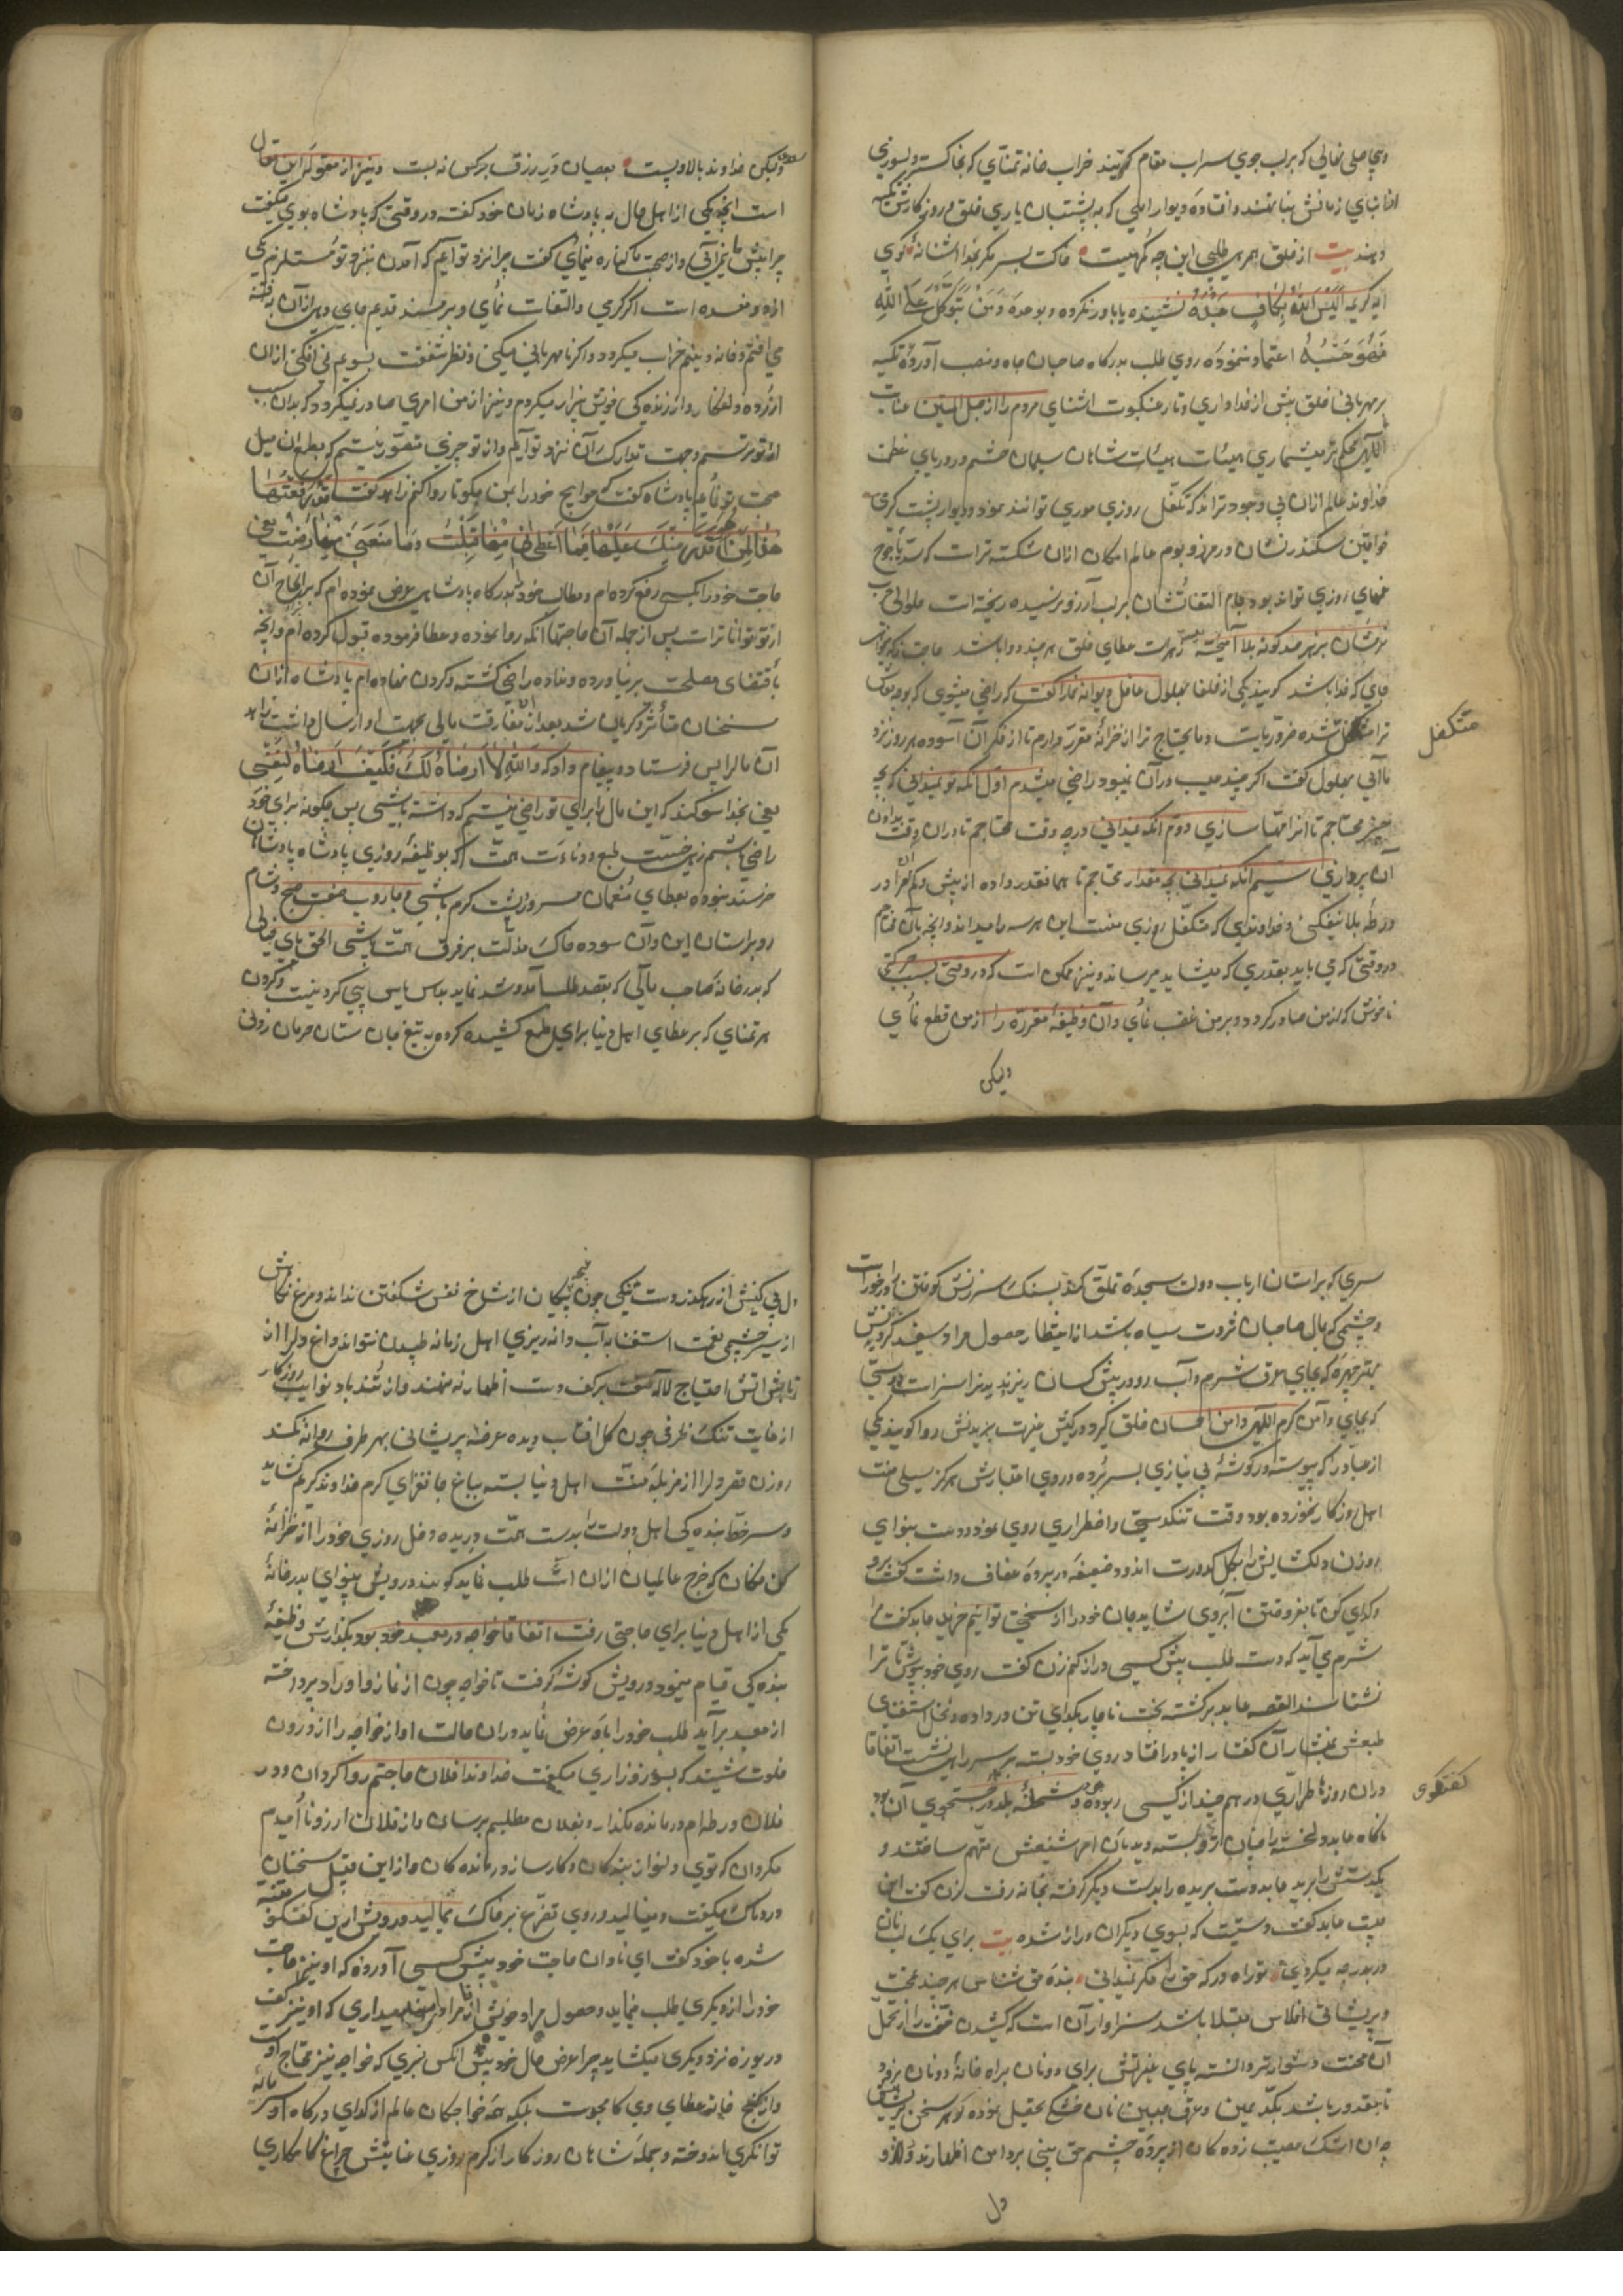 وبی حاصلی نهالی که بر لب جوی سراب مقام گزیند خراب خانه تمنّای که بخاکستر و بسوزی
دهند بیت از خلق امری طلبی این چه گمرهیست خاکت بسر مگر بخدا آشنا نهٔ کوی
آیه کریمه اَلَیْسَ اللّٰهُ بِکَافٍ عَبْدَهُ نشنیده یا باور نکرده و بوعده وَمَنْ یَتَوَکَّلْ عَلَی اللّٰهِ
فَهُوَ حَسْبُهُ اعتماد ننموده روی طلب بدرکاه صاحبان جاه و منصب آورده تکیه
بر مهربانی خلق بیش از خدا داری و تار عنکبوت آشنای مردم را از حبل المتین عنایت
آلهی محکم تر میشماری هیئات هیئات شاهان سلیمان حشم و دریای عظمت
خداوند عالم ازان بی وجود تراند که تکفّل روزی موری توانند نمود و دیوار پشت کرمی
خواقین سکندر نشان در مرز و بوم عالم امکان ازان شکسته تر است که سدّ یاجوج
غمهای روزی تواند بود جام التفاتشان بر لب آرزو نرسیده ریخته است
جای که خدا باشد گویند یکی از خلفا بهلول عاقل دیوانه نما را گفت که راضی میشوی که
ترا متکفل شده ضروریات و مایحتاج ترا از خزانه مقرر دارم تا از فکر آن آسوده هر روز نزد
متکفل
ما آئی بهلول گفت اگر چند عیب درآن نبود راضی میشدم اوّل آنکه تو نمیدانی که بچه
چیز محتاجم تا آنرا مهیّا سازی دوم آنکه نمیدانی در چه وقت محتاجم تا دران وقت
آن پردازی سیّم آنکه نمیدانی بچه مقدار محتاجم تا همانقدر داده از بیش و کم مرا در
ورطه بلا نیفکنی و خداوندی که متکفّل روزی منست این هر سه را میداند و آنچه بآن محتاجم
در وقتی که می باید بقدری که میشاید میرساند و نیز ممکن است که در وقتی بسبب حرکتی
ناخوش که از من صادر کردد و بر من غضب نمای و آن وظیفه مقرره را از من قطع نمای
ولیکن
ولیکن خداوند بالا و پست بعصیان در رزق بر کس نه بست و نیز از مقوله این مقال
است آنچه یکی از اهل حال به پادشاه زمان خود گفته در وقتی که پادشاه بوی میگفت
چرا پیش ما نمی آئی و از صحبت ما کناره مینمای گفت چرا نزد تو آیم که آمدن بنزد تو مستلزم یکی
از دو مفسده است اگر کرم کری و التفات نمای و بر مسند قدیم جای دهی ازآن بفتنه
می افتم و خانه دینم خراب میکردد و اگر نامهربانی میکنی و نظر شفقت بسویم نمی افکنی ازان
آزرده و از زنده کی خویش بیزار میکردم و نیز از من امری صادر نمیکردد که بدان سبب
از تو ترسم وجهت تدارک آن نزد تو آیم و از تو چیزی متصوّر نیستم که بطمع آن میل
صحبت تو نمایم پادشاه گفت که حوایج خود را بمن بکو تا روا کنم زاهد گفت قَدْ رَفَعْتُهَا
اِلٰی مَنْ هُوَ اَقْدَرُ مِنْکَ عَلَیْهَا فَمَا اَعْطَانِی مِنْهَا قَبِلْتُ وَمَا مَنَعَنِی مِنْهَا رَضِیتُ یعنی
حاجت خود را بکسی رفع کرده ام و مطالب خود بدرکاه پادشاهی عرض نموده ام که بر انجاح آن
از تو توانا تر است پس از جمله آن حاجتها آنکه روا نموده و عطا فرموده قبول کرده ام و آنچه
باقتضای مصلحت برنیاورده و نداده راضی گشته و کردن نهاده ام پادشاه ازان
سخنان متأثّر و گریان شد بعد از مفارقت مالی بجهت او ارسال داشت زاهد
آن مال را پس فرستاد و پیغام داد که وَاللّٰهِ لَا اَرْضَاهُ لَکَ فَکَیْفَ اَرْضَاهُ لِنَفْسِی
یعنی بخدا سوکند که این مال را برای تو راضی نیستم که داشته باشی پس چگونه برای خود
راضی باشم زهی خسّت طبع و دنائت همّت که بوظیفه روزی پادشاه پادشاهان
خرسند نبوده بعطای مُنعمان مسرور و پشت کرم باشی و جاروب صفت صبح و شام
رو بر آستان این و آن سوده خاک مذلّت بر فرق همّت پاشی الحق پای خیالی
که بدر خانه صاحب مالی که بقصد طلب آمد و شد نماید پی کردنیست و کردن
هر تمنای که بر عطای اهل دنیا برای طمع کشیده کرده به تیغ جان ستان حرمان زدنی
سری که بر آستان ارباب دولت سجده تملّق کند بسنک سرزنش کوفتن را درخور است
و چشمی که بمال صاحبان ثروت سیاه باشد از انتظار حصول مراد سفید کردنش
بهتر چهره که بجای عرق شرم و آب رو در پیش کسان ریزند بدن سزاست و دستی
که بجای دامن کرم آلهی دامن احسان خلق گیرد در کیش غیرت بریدنش روا گویند یکی
از عبّاد که پیوسته در گوشهٔ بی نیازی بسر برده و روی اعتبارش هرگز سیلی منّت
اهل روزگار نخورده بود وقت تنکدستی و اضطراری روی نمود و دست بینوای
روزن دلکشایش را بگل کدورت اندود ضعیفه در پرده عفاف داشت گفت برو
و گدای کن تا بفروختن آبروی شاید جان خود را از سختی توانیم خرید عابد گفت مرا
شرم می آید که دست طلب پیش کسی دراز کنم زن گفت روی خود بپوش تا ترا
نشناسند القصه عابد برگشته بخت ناچار بگدای تن در داده و نخل استغنای
طبعش بفشار آن گفتار از پا در افتاد روی خود بسته بر سر راهی نشست اتفاقا
دران روز طرّاری درهم چند از کیسی ربوده و شحنهٔ بلد در جستجوی آن بود
کفتکوی
ناگاه عابد دلخسته را میان رو بسته دید بآن امر شنیعش متّهم ساختند و
یکدستش را برید عابد دست بریده را بدست دیگر گرفته بخانه رفت زن گفت این
چیست عابد گفت دستیست که بسوی دیگران دراز شده بیت برای یک لب نان
در بدر چه میگردی تو راه در که حق را مگر نمیدانی بنده حق شناس هر چند بمحنت
و پریشانی افلاس مبتلا باشد سزاوار آن است که کشیدن منّت را از تحمّل
آن محنت دشوارتر دانسته پای غیرتش برای دو نان براه خانهٔ دونان نرود
تا مقدور باشد بکدّ یمین و عرق جبین نان خشک تحصیل نموده گوهر سخن
چون اشک مصیبت زده کان از پرده چشم حق بینی بر دامن اظهار نریزد و
دل
دل بی کینش از رهگذر دست تنگی چون غنچه پیکان از شاخ نفس شکفتن نداند و مرغ نگاهش
از سیر چشمی نعمت استغنا به آب و دانه ریزی اهل زمانه طپیدن نتواند داغ دلرا از
تابش آتش احتیاج لاله صفت بر کف دست اظهار ننهد و از تندباد نوایب روزگار
از غایت تنک ظرفی چون گل آفتاب دیده عرضهٔ پریشانی بهر طرف روانه نکند
روزن فقر دلرا از مزبله منّت اهل دنیا بسته بباغ جانفزای کرم خداوند کریم گشاید
و سر خط بنده کی اهل دولت را بدست همّت دریده دخل روزی خود را از خزانهٔ
کُن فکان که خرج عالمیان ازان است طلب نماید گویند درویش بینوای بدر خانهٔ
یکی از اهل دنیا برای حاجتی رفت اتفاقا خواجه در معبد خود بود بگذارش وظیفهٔ
بنده کی قیام مینمود درویش گوشه گرفت تا خواجه چون از نماز و اوراد پرداخته
از معبد برآید طلب خود را باو عرض نماید دران حالت آواز خواجه را از درون
خلوت شنید که بسوز و زاری میگفت خداوندا فلان حاجتم روا گردان و در
فلان ورطه ام درمانده مگذار و بفلان مطلبم برسان و از فلان آرزو نا اُمیدم
مگردان که توی دلنواز بندکان و کارساز درمانده کان و از این قبیل سخنان
دردناک میگفت و مینالید و روی تضرّع بر خاک میمالید درویش ازین گفتگو متنبّه
شده با خود گفت ای نادان حاجت خود پیش کسی آورده که او نیز حاجت
خود را از دیگری طلب مینماید و حصول مراد خویش از مرادی میداری که او نیز دست
دریوزه نزد دیگری میکشاید چرا عرض حال خود پیش آنکس نبری که خواجه نیز محتاج اوست
و از گنج خانه عطای وی کامجوست بلکه همه خواجگان عالم از گدای درگاه او سرمایهٔ
توانگری اندوخته و جمله شاهان روزگار از کرم روزی عنایتش چراغ کامکاری